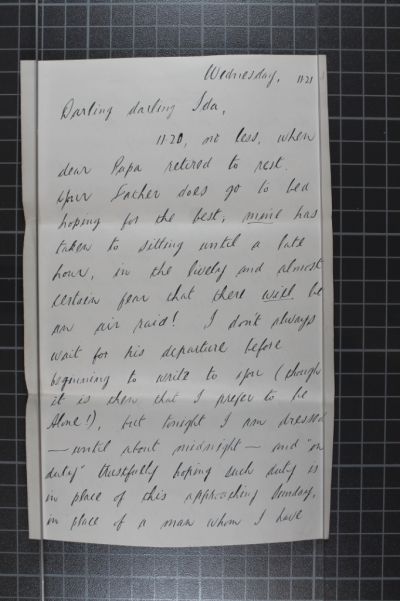 Wednesday, 11-21
Darling darling Ida,
11-20, no less, when
dear Papa retired to rest.
Your Father does go to bed
hoping for the best; mine has
taken to sitting until a late
hour, in the lively and almost
certain fear that there will be
an air raid! I don't always
wait for his departure before
beginning to write to you (though
it is then that I prefer to be
alone!), but tonight I am dressed
— until about midnight — and "on
duty" trustfully hoping such duty is
in place of this approaching Sunday,
in place of a man whom I have